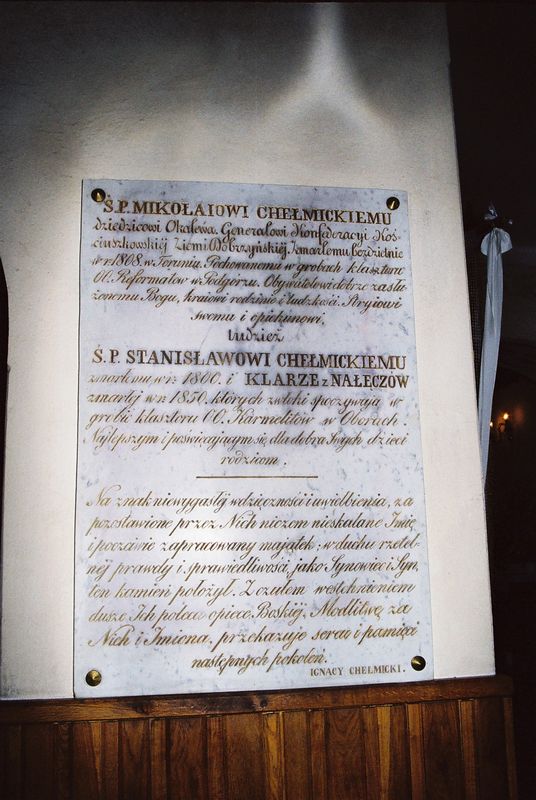 Ś.P. MIKOŁAIOWI CHEŁMICKIEMU
dziedzicowi Okalewa, Generałowi Konfederacyi Koś-
ciuszkowskiéj Ziemi Dobrzyńskiéj. Zmarłemu bezdzietnie
w r. 1808. w Toruniu. Pochowanemu w grobach klasztoru
OO. Reformatów w Podgórzu. Obywatelowi dobrze zasłu
żonemu Bogu, kraiowi rodzinie i ludzkości. Stryiowi
swemu i opiekunowi.
tudzież
Ś.P. STANISŁAWOWI CHEŁMICKIEMU
zmarłemu w r: 1800. i KLARZE z NAŁĘCZÓW
zmarłéj w r. 1850. których zwłoki spoczywają w
grobie klasztoru OO. Karmelitów w Oborach.
Najlepszym i poświęcającym się dla dobra Swych dzieci
rodzicom.
Na znak niewygasłéj wdzięczności i uwielbienia, za
pozostawione przez Nich niczem nieskalane Imię
i poczciwie zapracowany majątek; w duchu rzetel-
néj prawdy i sprawiedliwości, jako Synowiec i Syn,
ten kamień położył. Z czułem westchnieniem
dusze Ich poleca opiece Boskiéj. Modlitwę za
Nich i Imiona, przekazuje sercu i pamięci
następnych pokoleń.
IGNACY CHEŁMICKI.